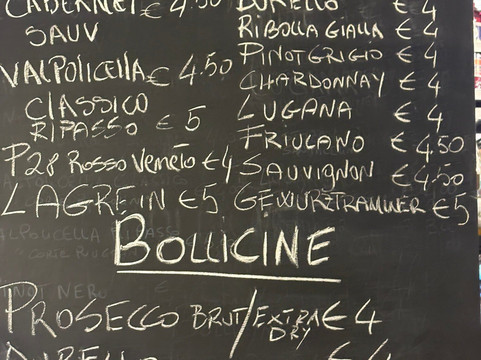 CABERNET € 4.50
SAUV
VALPOLICELLA € 4.50
CLASSICO
RIPASSO € 5
P28 ROSSO VENETO € 4
LAGREIN € 5
DURELLO € 4
RIBOLLA GIALLA € 4
PINOT GRIGIO € 4
CHARDONNAY € 4
LUGANA € 4
FRIULANO € 4.50
SAUVIGNON € 4.50
GEWURZTRAMINER € 5
BOLLICINE
PINOT NERO
PROSECCO BRUT/EXTRA DRY € 4
DURELLO € 4